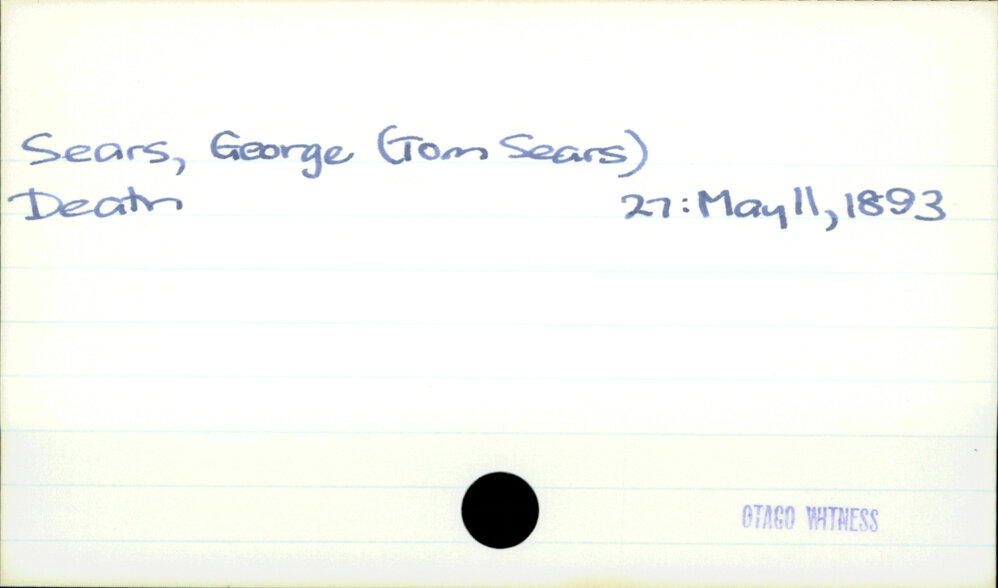 Sears, George (Tom Sears)
Death 27: May 11, 1893
OTAGO WITNESS